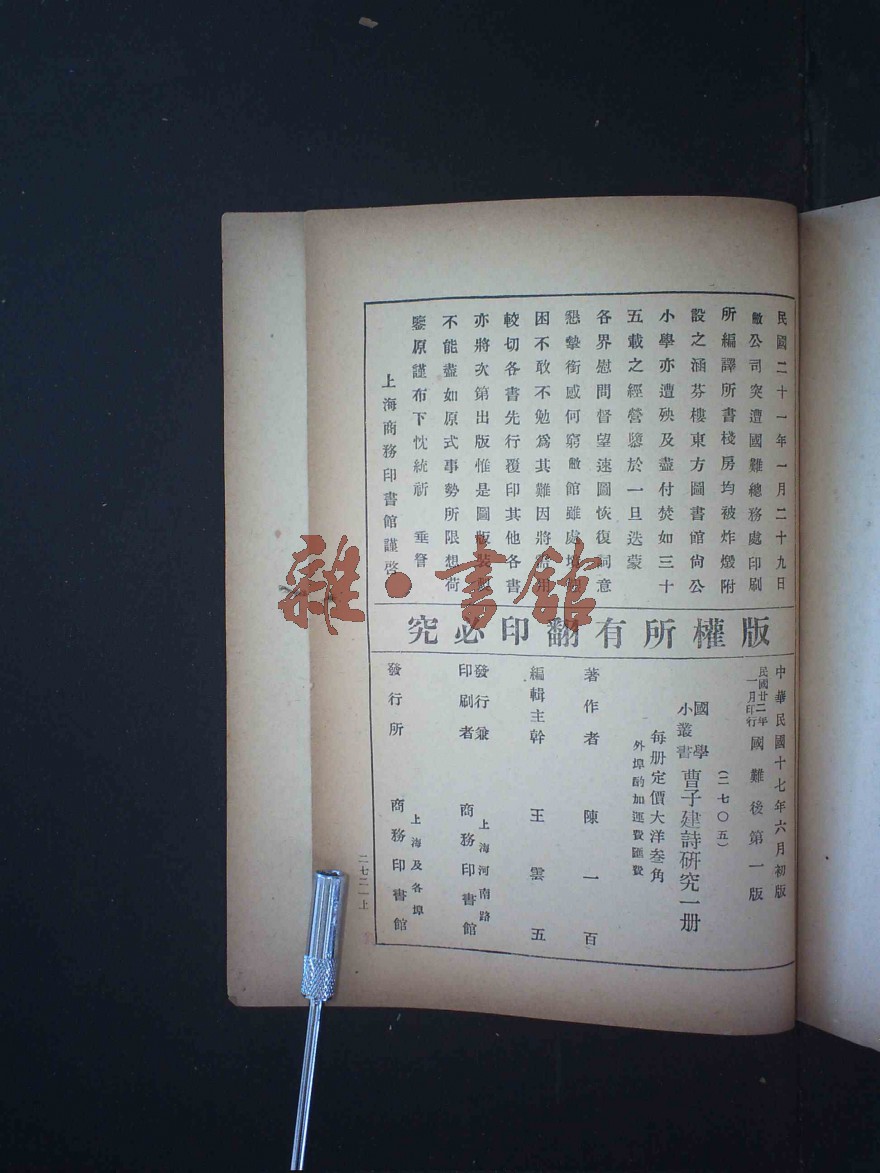 民國二十一年一月二十九日
敝公司突遭國難總務處印刷
所編譯所書棧房均被炸燬附
設之涵芬樓東方圖書館尚公
小學亦遭殃及盡付焚如三十
五載之經營隳於一旦迭蒙
各界慰問督望速圖恢復詞意
懇摯銜感何窮敝館雖處境
困不敢不勉爲其難因將需用
較切各書先行覆印其他各書
亦將次第出版惟是圖版裝製
不能盡如原式事勢所限想荷
鑒原謹布下忱統祈 垂詧
上海商務印書館謹啓
版權所有翻印必究
中華民國十七年六月初版
民國廿二年一月印行 國難後第一版
(二七〇五)
國學小叢書 曹子建詩研究一册
每册定價大洋叁角
外埠酌加運費匯費
著作者 陳一百
編輯主幹 王雲五
發行兼印刷者 上海河南路 商務印書館
發行所 上海及各埠 商務印書館
二七二一上
雜·書館